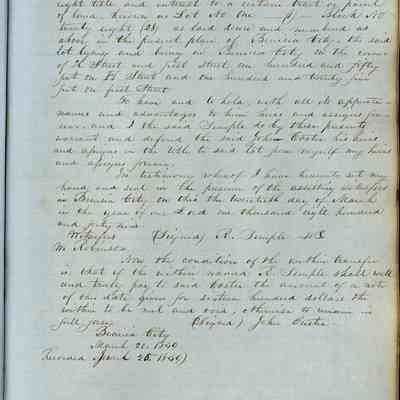 right title and interest to a certain tract or parcel
of land, known as Lot No One — (1) — Block No
twenty eight (28) as laid down and numbered as
above in the present plan of Benicia City, the said
lot lying and being in Benicia City on the corner
of H Street and first Street one hundred and fifty
feet on H Street and one hundred and twenty five
feet on first Street
To have and to hold, with all its appurte-
nances and advantages to him heirs and assigns for-
ever and I the said Temple do by these presents
warrant and defend the said John his heirs
and assigns in the title to said lot from myself my heirs
and assigns forever.
In testimony whereof I have hereunto set my
hand and seal in the presence of the assisting witnesses
in Benicia City on this the twentieth day of March
in the year of our Lord one thousand eight hundred
and forty nine
Witnesses (Signed) R. Semple
Wm
Now the condition of the within transfer
is that if the within named R. Semple shall well
and truly pay to said the amount of a note
of one date given for sixteen hundred dollars the
within to be null and void, otherwise to remain in
full force (Signed) John
Benicia City
March 20, 1849
Recorded April 25, 1849)